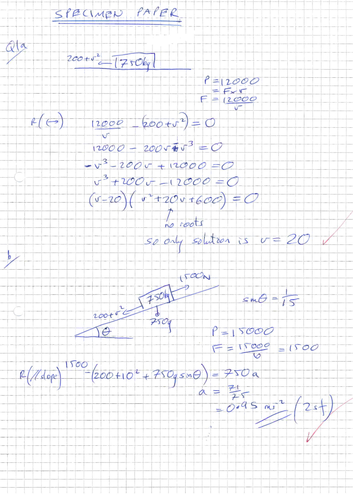 SPECIMEN PAPER
Q1a
200+v² 750kg
P = 12000
= F×v
F = 12000/v
R(↔) 12000/v - (200+v²) = 0
12000 - 200v - v³ = 0
-v³ - 200v + 12000 = 0
v³ + 200v - 12000 = 0
(v-20)(v² + 20v + 600) = 0
↑
no roots
so only solution is v = 20
b
1500N
750kg
200+v²
750g
θ
sinθ = 1/15
P = 15000
F = 15000/v = 1500
R(//slope) 1500 - (200+10² + 750g sinθ) = 750a
a = 71/75
= 0.95 ms⁻² (2sf)